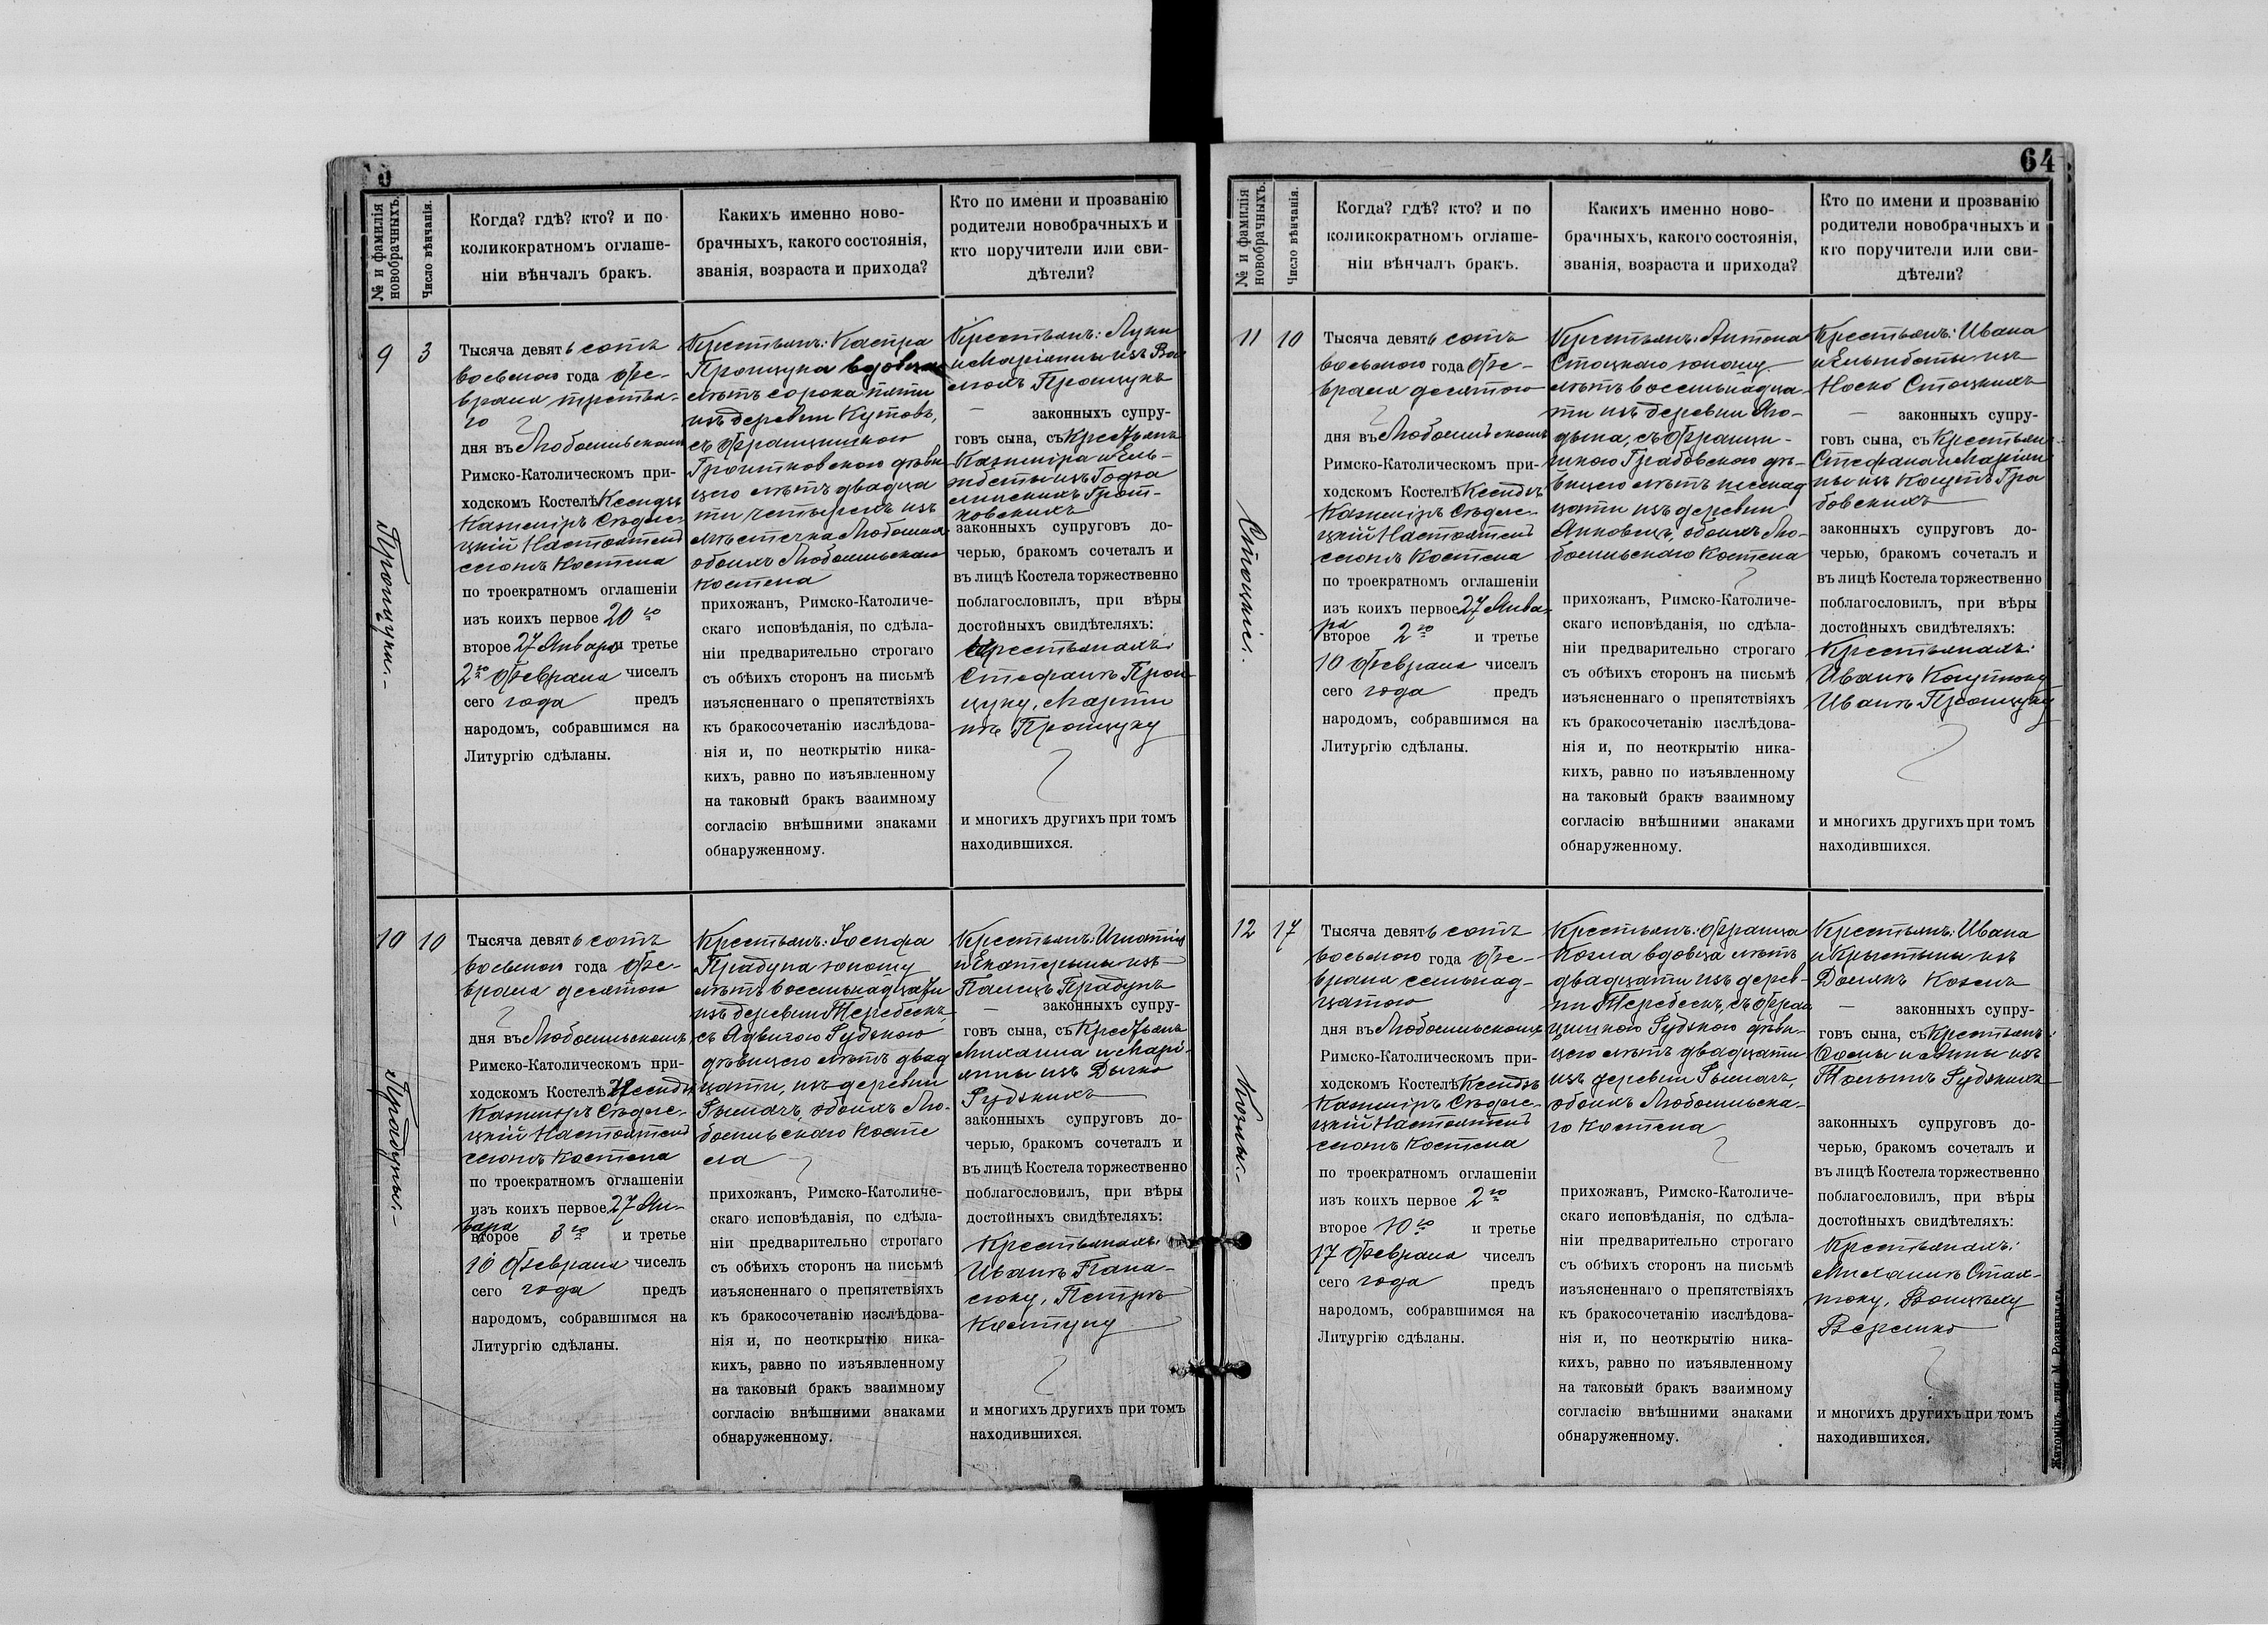 № и фамилія новобрачныхъ.
Число вѣнчанія.
Когда? гдѣ? кто? и по
коликократномъ оглаше-
ніи вѣнчалъ бракъ.
Какихъ именно ново-
брачныхъ, какого состоянія,
званія, возраста и прихода?
Кто по имени и прозванію
родители новобрачныхъ и
кто поручители или сви-
дѣтели?
9
3
Прощуки.-
Тысяча девятьсотъ
восьмого года Фе-
враля третья-
го
дня въ Любомльскомъ
Римско-Католическомъ при-
ходскомъ Костелѣ Ксендзъ
Казиміръ
цкій Настоятель
сіонъ Костела
по троекратномъ оглашеніи
изъ коихъ первое 20го
второе 27 Января и третье
2го Февраля чиселъ
сего года предъ
народомъ, собравшимся на
Литургію сдѣланы.
Крестьянъ: Каспра
Прощука вдовца
лѣтъ сорока пяти
изъ деревни Кутовъ,
съ Францишкою
дѣви-
цею лѣтъ двадца
ти четырехъ изъ
мѣстечка Любомля
обоихъ Любомльскаго
Костела
прихожанъ, Римско-Католиче-
скаго исповѣданія, по сдѣла-
ніи предварительно строгаго
съ обѣихъ сторонъ на письмѣ
изъясненнаго о препятствіяхъ
къ бракосочетанію изслѣдова-
нія и, по неоткрытію ника-
кихъ, равно по изъявленному
на таковый бракъ взаимному
согласію внѣшними знаками
обнаруженному.
Крестьянъ: Луки
и Маріанны изъ
Прощукъ
законныхъ супру-
говъ сына, съ Крестьянъ
Казиміра и Ель-
жбеты изъ

законныхъ супруговъ до-
черью, бракомъ сочеталъ и
въ лицѣ Костела торжественно
поблагословилъ, при вѣры
достойныхъ свидѣтеляхъ:
Крестьянахъ:
Стефанъ Прощ-
цуку, Марти
нъ Прощуку
и многихъ другихъ при томъ
находившихся.
10
10
Прадуны.-
Тысяча девятьсотъ
восьмого года Фе-
враля десятого
дня въ Любомльскомъ
Римско-Католическомъ при-
ходскомъ Костелѣ Ксендзъ
Казиміръ
цкій Настоятель
сіонъ Костела
по троекратномъ оглашеніи
изъ коихъ первое 27 Ян-
варя
второе 3го и третье
10 Февраля чиселъ
сего года предъ
народомъ, собравшимся на
Литургію сдѣланы.
Крестьянъ: Іосифа
Прадуна юношу
лѣтъ восемьнадцати
изъ деревни Теребеекъ,
съ Ядвигою Рудзкою
дѣвицею лѣтъ двад
цати, изъ деревни
Рымачъ, обоихъ Лю-
бомльскаго Косте
ла
прихожанъ, Римско-Католиче-
скаго исповѣданія, по сдѣла-
ніи предварительно строгаго
съ обѣихъ сторонъ на письмѣ
изъясненнаго о препятствіяхъ
къ бракосочетанію изслѣдова-
нія и, по неоткрытію ника-
кихъ, равно по изъявленному
на таковый бракъ взаимному
согласію внѣшними знаками
обнаруженному.
Крестьянъ: Игнатія
и Екатерины изъ
Прадунъ
законныхъ супру-
говъ сына, съ Крестьянъ
Михаила и Марі-
янны изъ Дычко
Рудзкихъ
законныхъ супруговъ до-
черью, бракомъ сочеталъ и
въ лицѣ Костела торжественно
поблагословилъ, при вѣры
достойныхъ свидѣтеляхъ:
Крестьянахъ:
Иванъ Пана-
сюку, Петръ

и многихъ другихъ при томъ
находившихся.
64
№ и фамилія новобрачныхъ.
Число вѣнчанія.
Когда? гдѣ? кто? и по
коликократномъ оглаше-
ніи вѣнчалъ бракъ.
Какихъ именно ново-
брачныхъ, какого состоянія,
званія, возраста и прихода?
Кто по имени и прозванію
родители новобрачныхъ и
кто поручители или сви-
дѣтели?
11
10
Стоцкіе.
Тысяча девятьсотъ
восьмого года Фе-
враля десятого
дня въ Любомльскомъ
Римско-Католическомъ при-
ходскомъ Костелѣ Ксендзъ
Казиміръ
цкій Настоятель
сіонъ Костела
по троекратномъ оглашеніи
изъ коихъ первое 27 Янва-
ря
второе 2го и третье
10 Февраля чиселъ
сего года предъ
народомъ, собравшимся на
Литургію сдѣланы.
Крестьянъ: Антона
Стоцкаго юношу
лѣтъ восемьнадца-
ти изъ деревни Яго-
дына, съ Франци-
шкою Грабовскою дѣ-
вицею лѣтъ шеснад
цати изъ деревни
Янковецъ, обоихъ Лю-
бомльскаго Костела
прихожанъ, Римско-Католиче-
скаго исповѣданія, по сдѣла-
ніи предварительно строгаго
съ обѣихъ сторонъ на письмѣ
изъясненнаго о препятствіяхъ
къ бракосочетанію изслѣдова-
нія и, по неоткрытію ника-
кихъ, равно по изъявленному
на таковый бракъ взаимному
согласію внѣшними знаками
обнаруженному.
Крестьянъ: Ивана
и Ельжбеты изъ
Стоцкихъ
законныхъ супру-
говъ сына, съ Крестьянъ
Стефана и Маріан
ны изъ Кощутъ Гра
бовскихъ
законныхъ супруговъ до-
черью, бракомъ сочеталъ и
въ лицѣ Костела торжественно
поблагословилъ, при вѣры
достойныхъ свидѣтеляхъ:
Крестьянахъ:
Иванъ
Иванъ Прощуку
и многихъ другихъ при томъ
находившихся.
12
17
Козлы.-
Тысяча девятьсотъ
восьмого года Фе-
враля семьнад-
цатого
дня въ Любомльскомъ
Римско-Католическомъ при-
ходскомъ Костелѣ Ксендзъ
Казиміръ
цкій Настоятель
сіонъ Костела
по троекратномъ оглашеніи
изъ коихъ первое 2го
второе 10го и третье
17 Февраля чиселъ
сего года предъ
народомъ, собравшимся на
Литургію сдѣланы.
Крестьянъ: Франца
Козла вдовца лѣтъ
двадцати изъ дерев-
ни Теребеекъ, съ Фран
цишкою Рудзкою дѣви-
цею лѣтъ двадцати
изъ деревни Рымачъ,
обоихъ Любомльска-
го Костела
прихожанъ, Римско-Католиче-
скаго исповѣданія, по сдѣла-
ніи предварительно строгаго
съ обѣихъ сторонъ на письмѣ
изъясненнаго о препятствіяхъ
къ бракосочетанію изслѣдова-
нія и, по неоткрытію ника-
кихъ, равно по изъявленному
на таковый бракъ взаимному
согласію внѣшними знаками
обнаруженному.
Крестьянъ: Ивана
и Крыстыны изъ
Козелъ
законныхъ супру-
говъ сына, съ Крестьянъ
и Анны изъ
Рудзкихъ
законныхъ супруговъ до-
черью, бракомъ сочеталъ и
въ лицѣ Костела торжественно
поблагословилъ, при вѣры
достойныхъ свидѣтеляхъ:
Крестьянахъ:
Михаилъ Стах-
нюку, Войцѣху
Веремко
и многихъ другихъ при томъ
находившихся.
Житоміръ, тип. М.